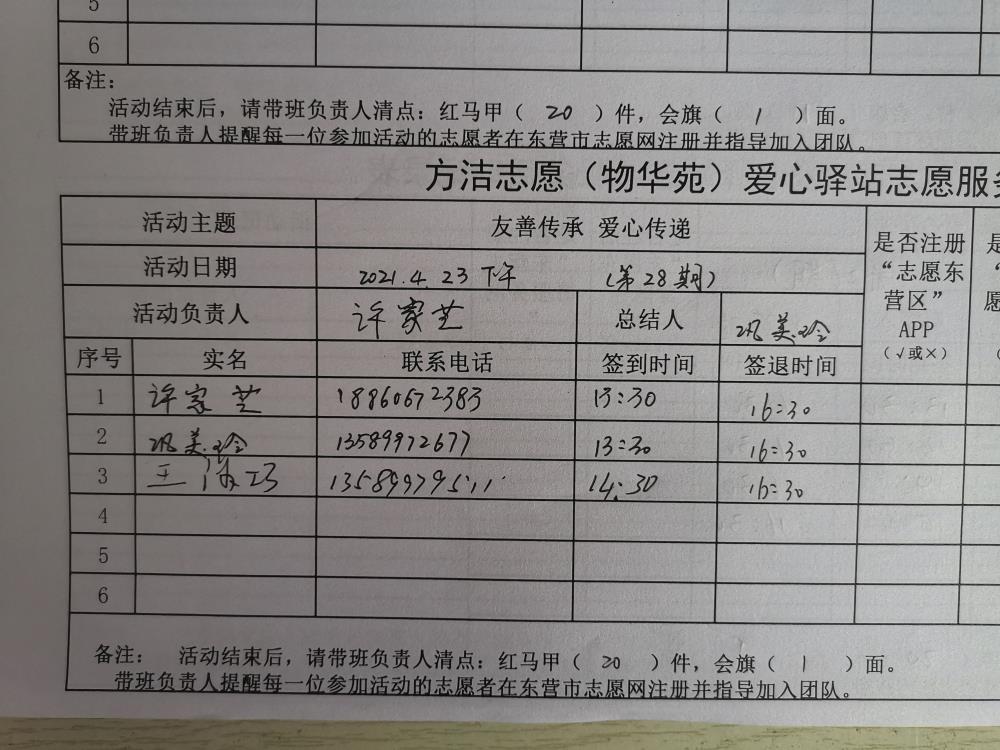 5
6
备注：
活动结束后，请带班负责人清点：红马甲（ 20 ）件，会旗（ 1 ）面。
带班负责人提醒每一位参加活动的志愿者在东营市志愿网注册并指导加入团队。
方洁志愿（物华苑）爱心驿站志愿服务
活动主题 友善传承 爱心传递
是否注册“志愿东营区”APP（√或×）
活动日期 2021.4 23 下午 （第 28 期）
活动负责人 许家芝 总结人 巩美玲
序号 实名 联系电话 签到时间 签退时间
1 许家芝 18860672383 13:30 16:30
2 巩美玲 13589972677 13:30 16:30
3 王 巧 13589979511 14:30 16:30
4
5
6
备注： 活动结束后，请带班负责人清点：红马甲（ 20 ）件，会旗（ 1 ）面。
带班负责人提醒每一位参加活动的志愿者在东营市志愿网注册并指导加入团队。